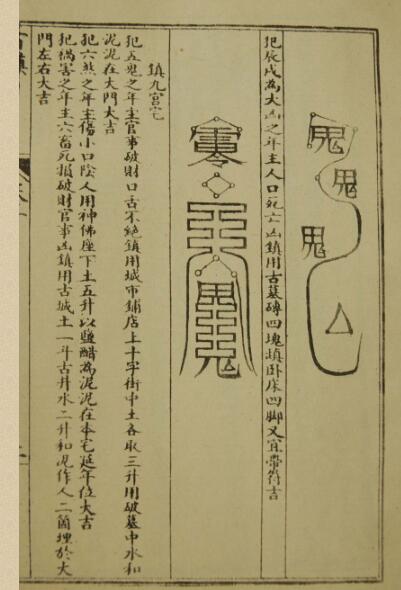 鬼
鬼
鬼
犯辰戌為大凶之年主人口死亡凶鎮用古墓磚四塊填卧床四脚又宜帶符吉
鎮九宮宅
犯五鬼之年主官事破財口舌不絕鎮用城市鋪店上十字街中土各取三升用破墓中水和
泥泥在大門大吉
犯六煞之年主傷小口陰人用神佛座下土五升以鹽醋為泥泥在本宅延年位大吉
犯禍害之年主六畜死損破財官事凶鎮用古城土一斗古井水二升和泥作人二箇埋於大
門左右大吉